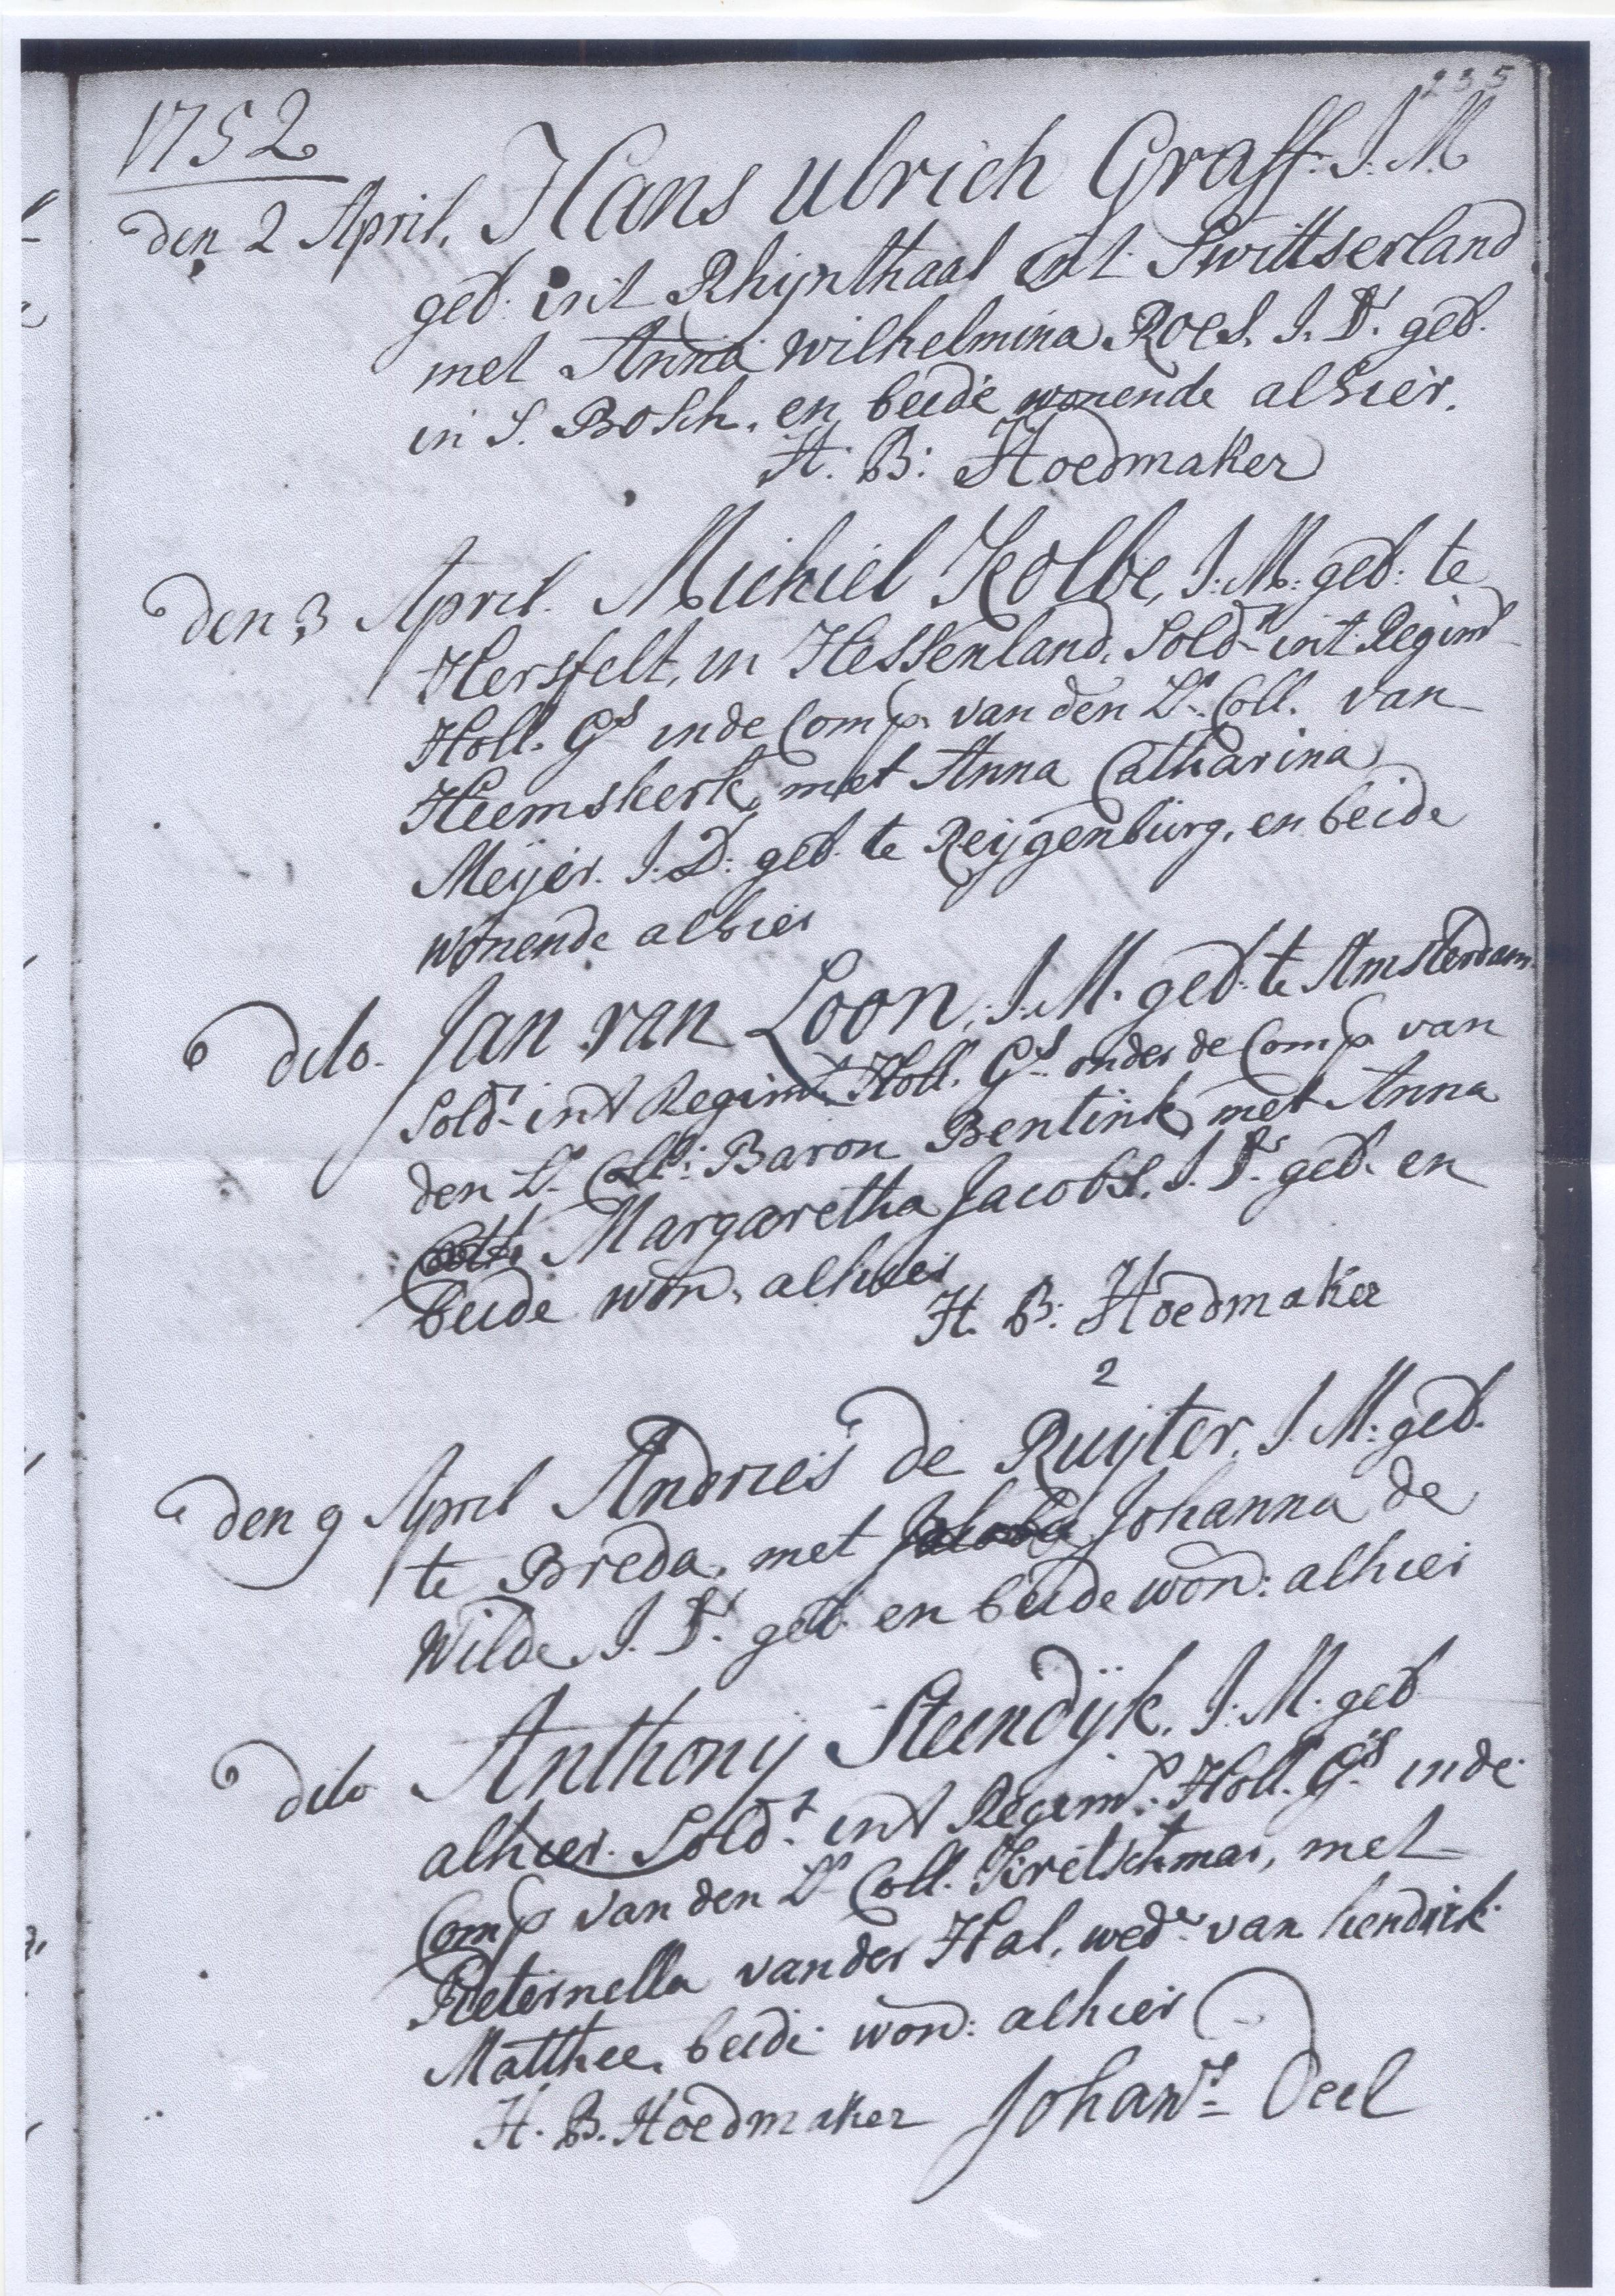 235
1752
den 2 April. Hans Ulrich Graff. J. M.
geb. int Rhijnthaal int Swittserland
met Anna Wilhelmina Roes. J. D. geb.
in S. Bosch, en beide wonende alhier.
H. B: Hoedmaker
den 3 April. Michiel Kolbe, J. M. geb: te
Hersfelt, in Hessenland, Soldt int Regimt
Holl. Gs in de Comp. van den Lt. Coll. van
Heemskerk, met Anna Catharina
Meijer. J. D. geb. te Reijgenburg, en beide
wonende alhier
dito. Jan van Loon, J. M. geb. te Amsterdam.
Soldt int Regimt Holl. Gs onder de Comp van
den Lt. Coll: Baron Bentink, met Anna
Margaretha Jacobs. J. D. geb. en
beide won. alhier
H. B: Hoedmaker
2
den 9 April Andries de Ruijter, J. M: geb.
te Breda, met Jacoba Johanna de
Wilde J. D. geb. en beide won: alhier
dito Anthonij Steendijk. J: M. geb
alhier. Soldt int Regimt. Holl. Gs in de
Comp van den Lt Coll. Kretschmar, met
Pieternella vander Hal, wede van hendrik
Matthee, beide won: alhier
H. B. Hoedmaker Johans Deel